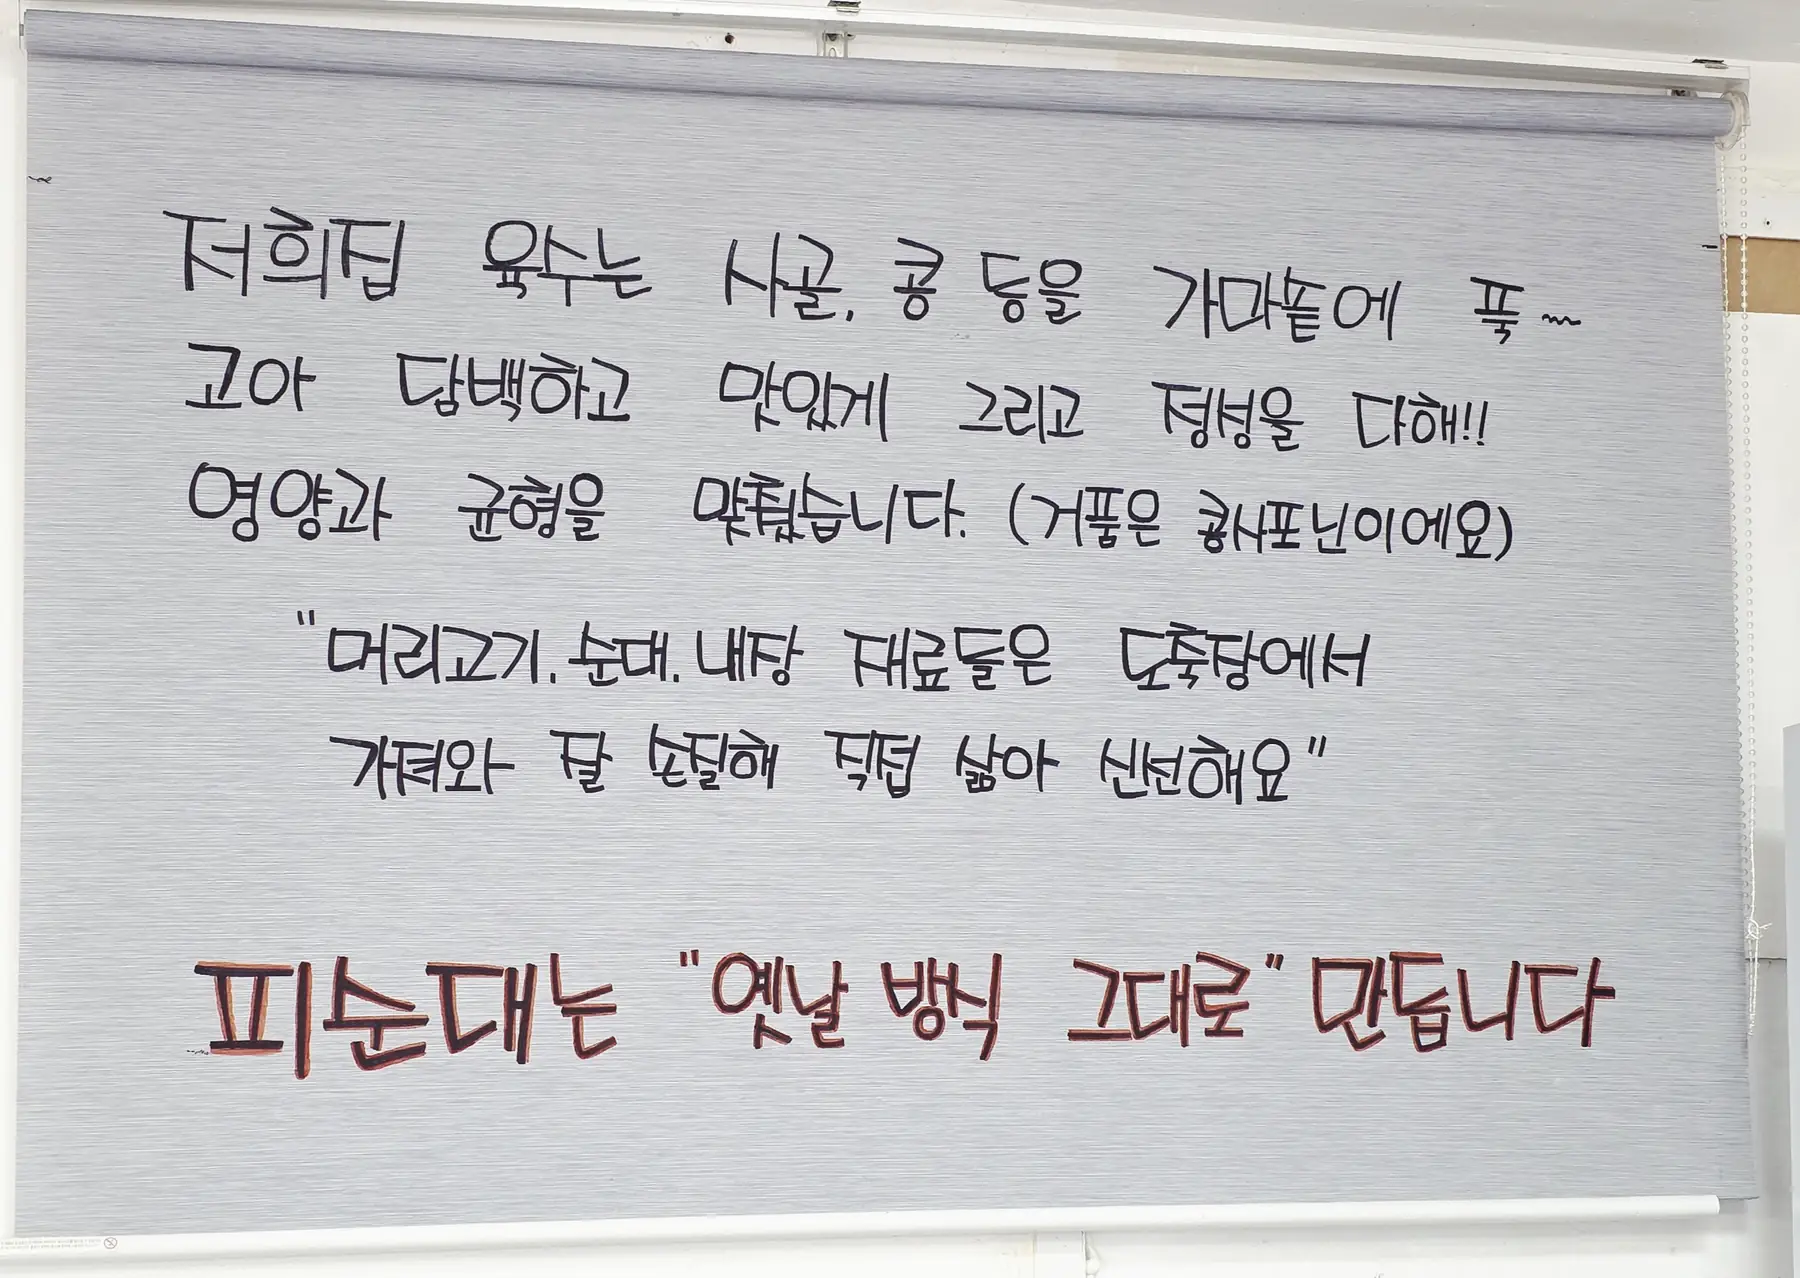 저희집 육수는 사골, 콩 등을 가마솥에 푹~
고아 담백하고 맛있게 그리고 정성을 다해!!
영양과 균형을 맞췄습니다. (거품은 콩사포닌이에요)
"머리고기. 순대. 내장 재료들은 도축장에서
가져와 잘 손질해 직접 삶아 신선해요"
피순대는 "옛날 방식 그대로" 만듭니다